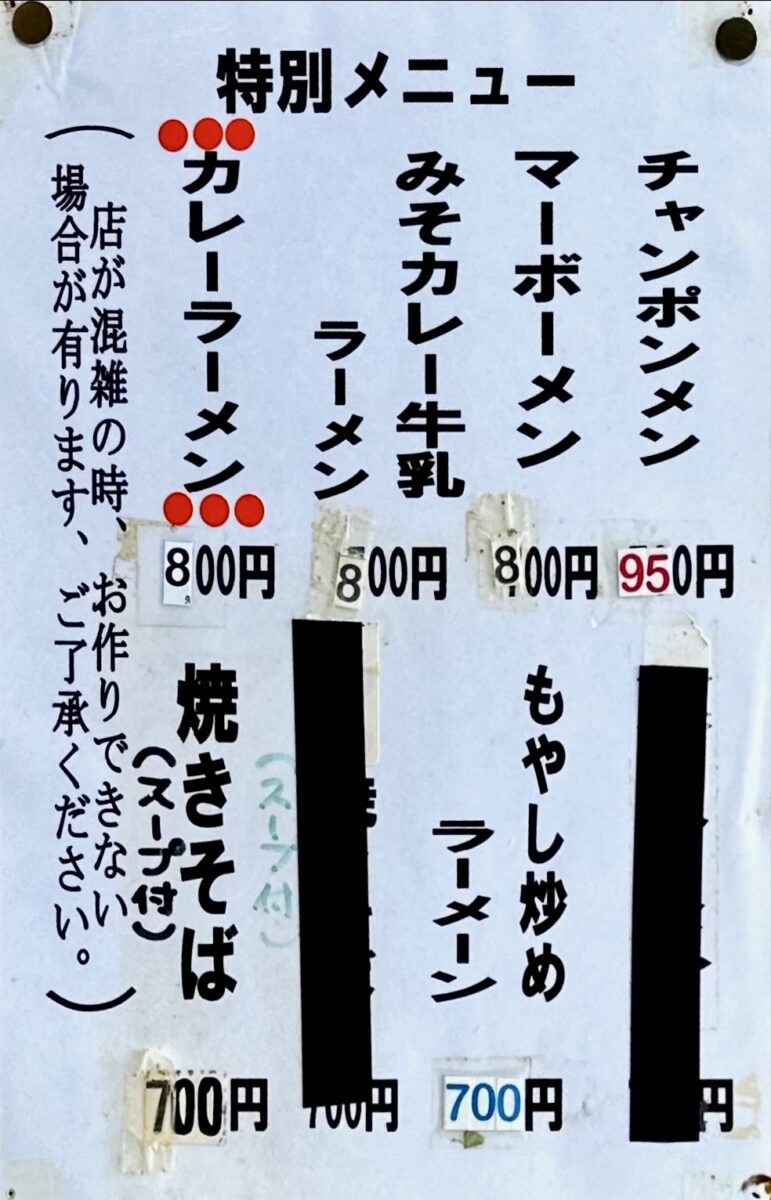 特別メニュー
チャンポンメン
950円
マーボーメン
800円
みそカレー牛乳
ラーメン
800円
カレーラーメン
800円
円
もやし炒め
ラーメーン
700円
(スープ付)
700円
焼きそば
(スープ付)
700円
(店が混雑の時、お作りできない
場合が有ります、ご了承ください。)